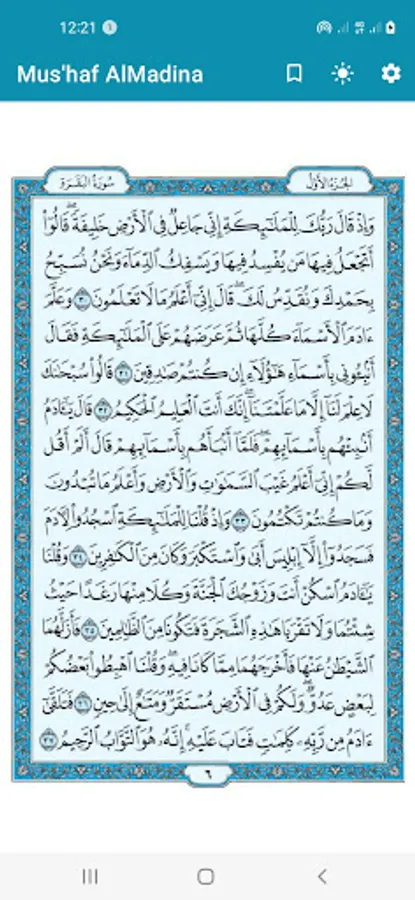 12:21
Mus'haf AlMadina
الجزء الأول
سورة البقرة
وَإِذْ قَالَ رَبُّكَ لِلْمَلَٰٓئِكَةِ إِنِّي جَاعِلٌ فِي ٱلْأَرْضِ خَلِيفَةً ۖ قَالُوٓا۟
أَتَجْعَلُ فِيهَا مَن يُفْسِدُ فِيهَا وَيَسْفِكُ ٱلدِّمَآءَ وَنَحْنُ نُسَبِّحُ
بِحَمْدِكَ وَنُقَدِّسُ لَكَ ۖ قَالَ إِنِّيٓ أَعْلَمُ مَا لَا تَعْلَمُونَ ٣٠ وَعَلَّمَ
ءَادَمَ ٱلْأَسْمَآءَ كُلَّهَا ثُمَّ عَرَضَهُمْ عَلَى ٱلْمَلَٰٓئِكَةِ فَقَالَ
أَنۢبِـُٔونِي بِأَسْمَآءِ هَٰٓؤُلَآءِ إِن كُنتُمْ صَٰدِقِينَ ٣١ قَالُوا۟ سُبْحَٰنَكَ
لَا عِلْمَ لَنَآ إِلَّا مَا عَلَّمْتَنَآ ۖ إِنَّكَ أَنتَ ٱلْعَلِيمُ ٱلْحَكِيمُ ٣٢ قَالَ يَٰٓـَٔادَمُ
أَنۢبِئْهُم بِأَسْمَآئِهِمْ ۖ فَلَمَّآ أَنۢبَأَهُم بِأَسْمَآئِهِمْ قَالَ أَلَمْ أَقُل
لَّكُمْ إِنِّيٓ أَعْلَمُ غَيْبَ ٱلسَّمَٰوَٰتِ وَٱلْأَرْضِ وَأَعْلَمُ مَا تُبْدُونَ
وَمَا كُنتُمْ تَكْتُمُونَ ٣٣ وَإِذْ قُلْنَا لِلْمَلَٰٓئِكَةِ ٱسْجُدُوا۟ لِـَٔادَمَ
فَسَجَدُوٓا۟ إِلَّآ إِبْلِيسَ أَبَىٰ وَٱسْتَكْبَرَ وَكَانَ مِنَ ٱلْكَٰفِرِينَ ٣٤ وَقُلْنَا
يَٰٓـَٔادَمُ ٱسْكُنْ أَنتَ وَزَوْجُكَ ٱلْجَنَّةَ وَكُلَا مِنْهَا رَغَدًا حَيْثُ
شِئْتُمَا وَلَا تَقْرَبَا هَٰذِهِ ٱلشَّجَرَةَ فَتَكُونَا مِنَ ٱلظَّٰلِمِينَ ٣٥ فَأَزَلَّهُمَا
ٱلشَّيْطَٰنُ عَنْهَا فَأَخْرَجَهُمَا مِمَّا كَانَا فِيهِ ۖ وَقُلْنَا ٱهْبِطُوا۟ بَعْضُكُمْ
لِبَعْضٍ عَدُوٌّ ۖ وَلَكُمْ فِي ٱلْأَرْضِ مُسْتَقَرٌّ وَمَتَٰعٌ إِلَىٰ حِينٍ ٣٦ فَتَلَقَّىٰٓ
ءَادَمُ مِن رَّبِّهِۦ كَلِمَٰتٍ فَتَابَ عَلَيْهِ ۚ إِنَّهُۥ هُوَ ٱلتَّوَّابُ ٱلرَّحِيمُ ٣٧
٦